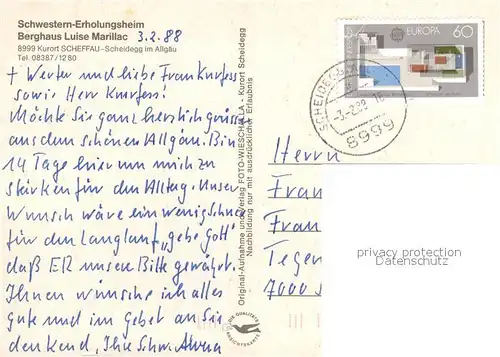 Schwestern-Erholungsheim
Berghaus Luise Marillac 3.2.88
8999 Kurort SCHEFFAU - Scheidegg im Allgäu
Tel. 08387/1280
+ Werter und liebe Frau Knrfess
sowie Herr Knrfess!
Möchte Sie ganz herzlich grüssen
aus dem schönen Allgäu. Bin
14 Tage hier um mich zu
stärken für den Alltag. Unser
Wunsch wäre ein wenig Schnee
für den Langlauf „gebe Gott"
daß ER unsere Bitte gewährt.
Ihnen wünsche ich alles
Gute und im Gebet an Sie
denkend, Ihre Schw.
Original-Aufnahme und Verlag FOTO-WIESCHALLA - Kurort Scheidegg
Nachbildung nur mit ausdrücklicher Erlaubnis
DIE QUALITÄTS
ANSICHTSKARTE
EUROPA 60
SCHEIDEGG
-3.-2.88-16
8999
Herrn
Fran
Fran
Tegen
7000 S
privacy protection
Datenschutz